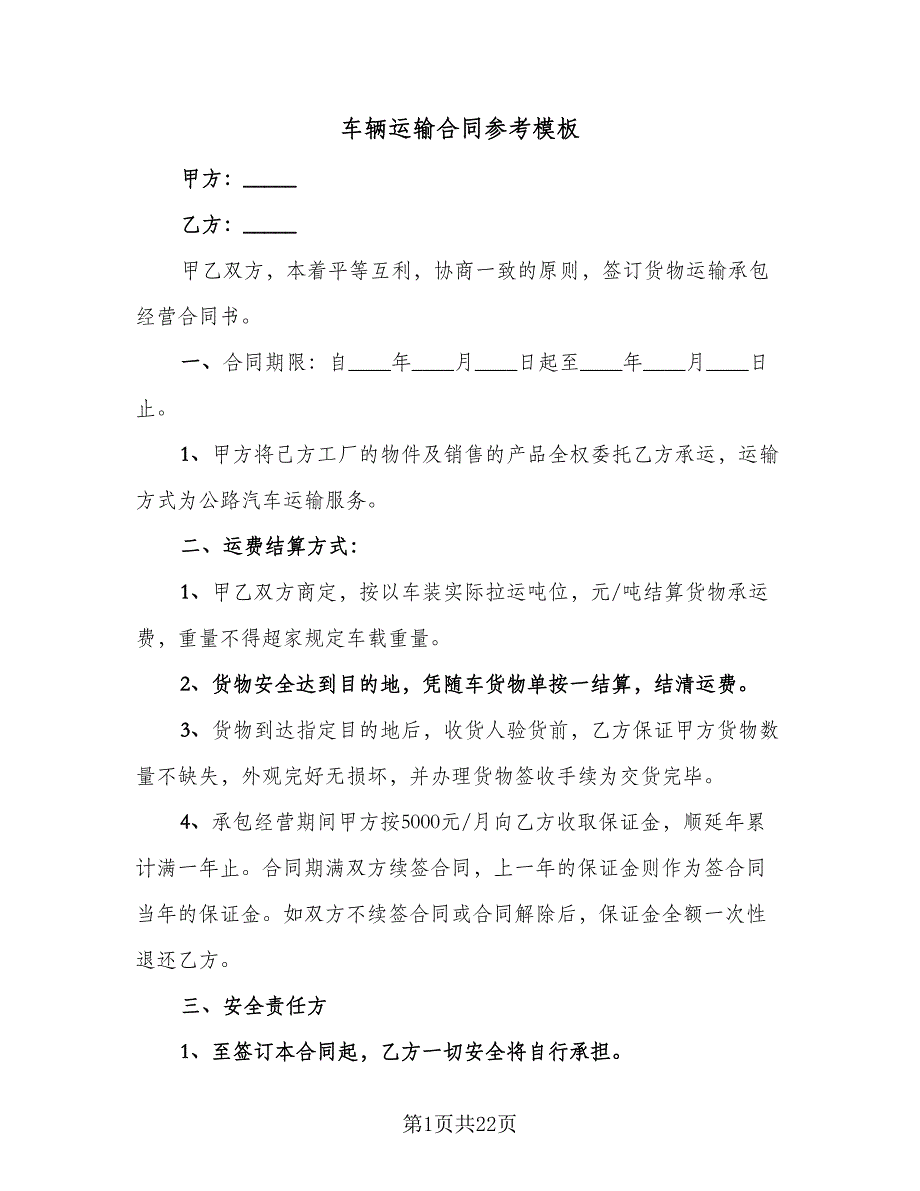 车辆运输合同参考模板
甲方：_____
乙方：_____
甲乙双方，本着平等互利，协商一致的原则，签订货物运输承包
经营合同书。
一、合同期限：自____年____月____日起至____年____月____日
止。
1、甲方将己方工厂的物件及销售的产品全权委托乙方承运，运输
方式为公路汽车运输服务。
二、运费结算方式：
1、甲乙双方商定，按以车装实际拉运吨位，元/吨结算货物承运
费，重量不得超家规定车载重量。
2、货物安全达到目的地，凭随车货物单按一结算，结清运费。
3、货物到达指定目的地后，收货人验货前，乙方保证甲方货物数
量不缺失，外观完好无损坏，并办理货物签收手续为交货完毕。
4、承包经营期间甲方按5000元/月向乙方收取保证金，顺延年累
计满一年止。合同期满双方续签合同，上一年的保证金则作为签合同
当年的保证金。如双方不续签合同或合同解除后，保证金全额一次性
退还乙方。
三、安全责任方
1、至签订本合同起，乙方一切安全将自行承担。
第1页共22页